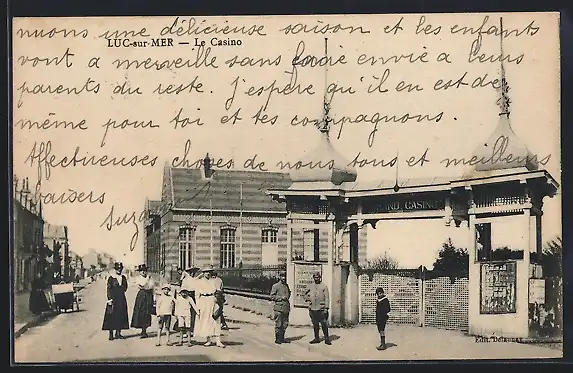 nuons une délicieuse saison et les enfants
LUC-sur-MER — Le Casino
vont à merveille sans faire envie à leurs
parents du reste. J'espère qu'il en est de
même pour toi et tes compagnons.
Affectueuses choses de nous tous et meilleurs
baisers
GRAND CASINO